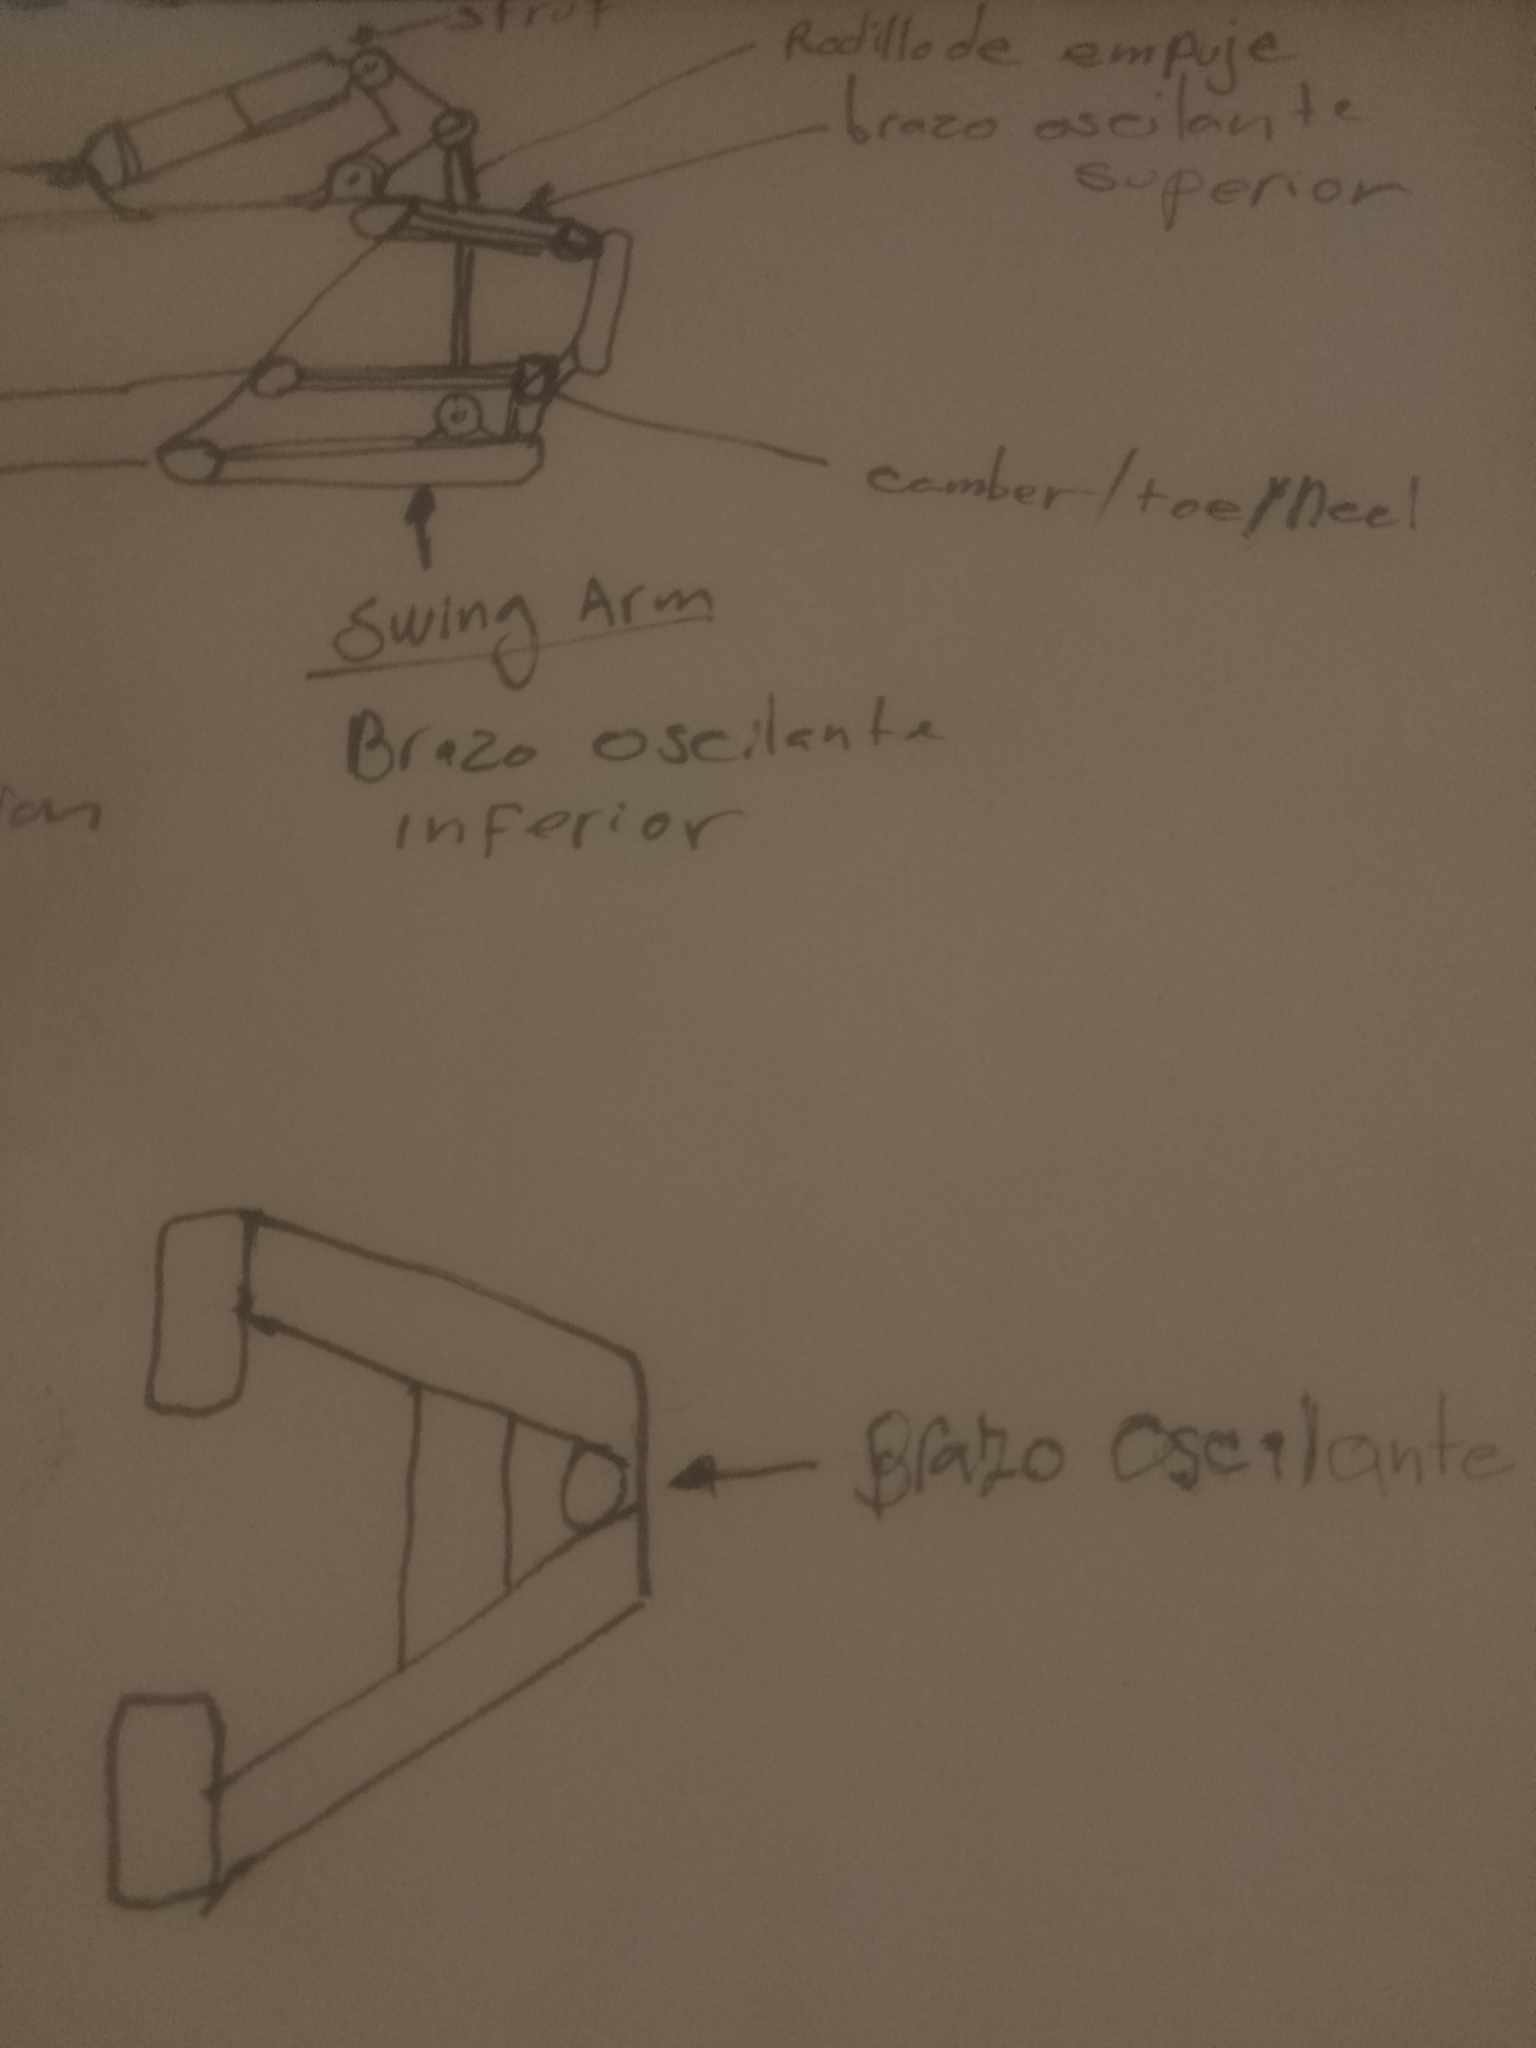 strut
Rodillo de empuje
brazo oscilante
superior
camber/toe/Heel
Swing Arm
Brazo oscilante
inferior
Brazo Oscilante